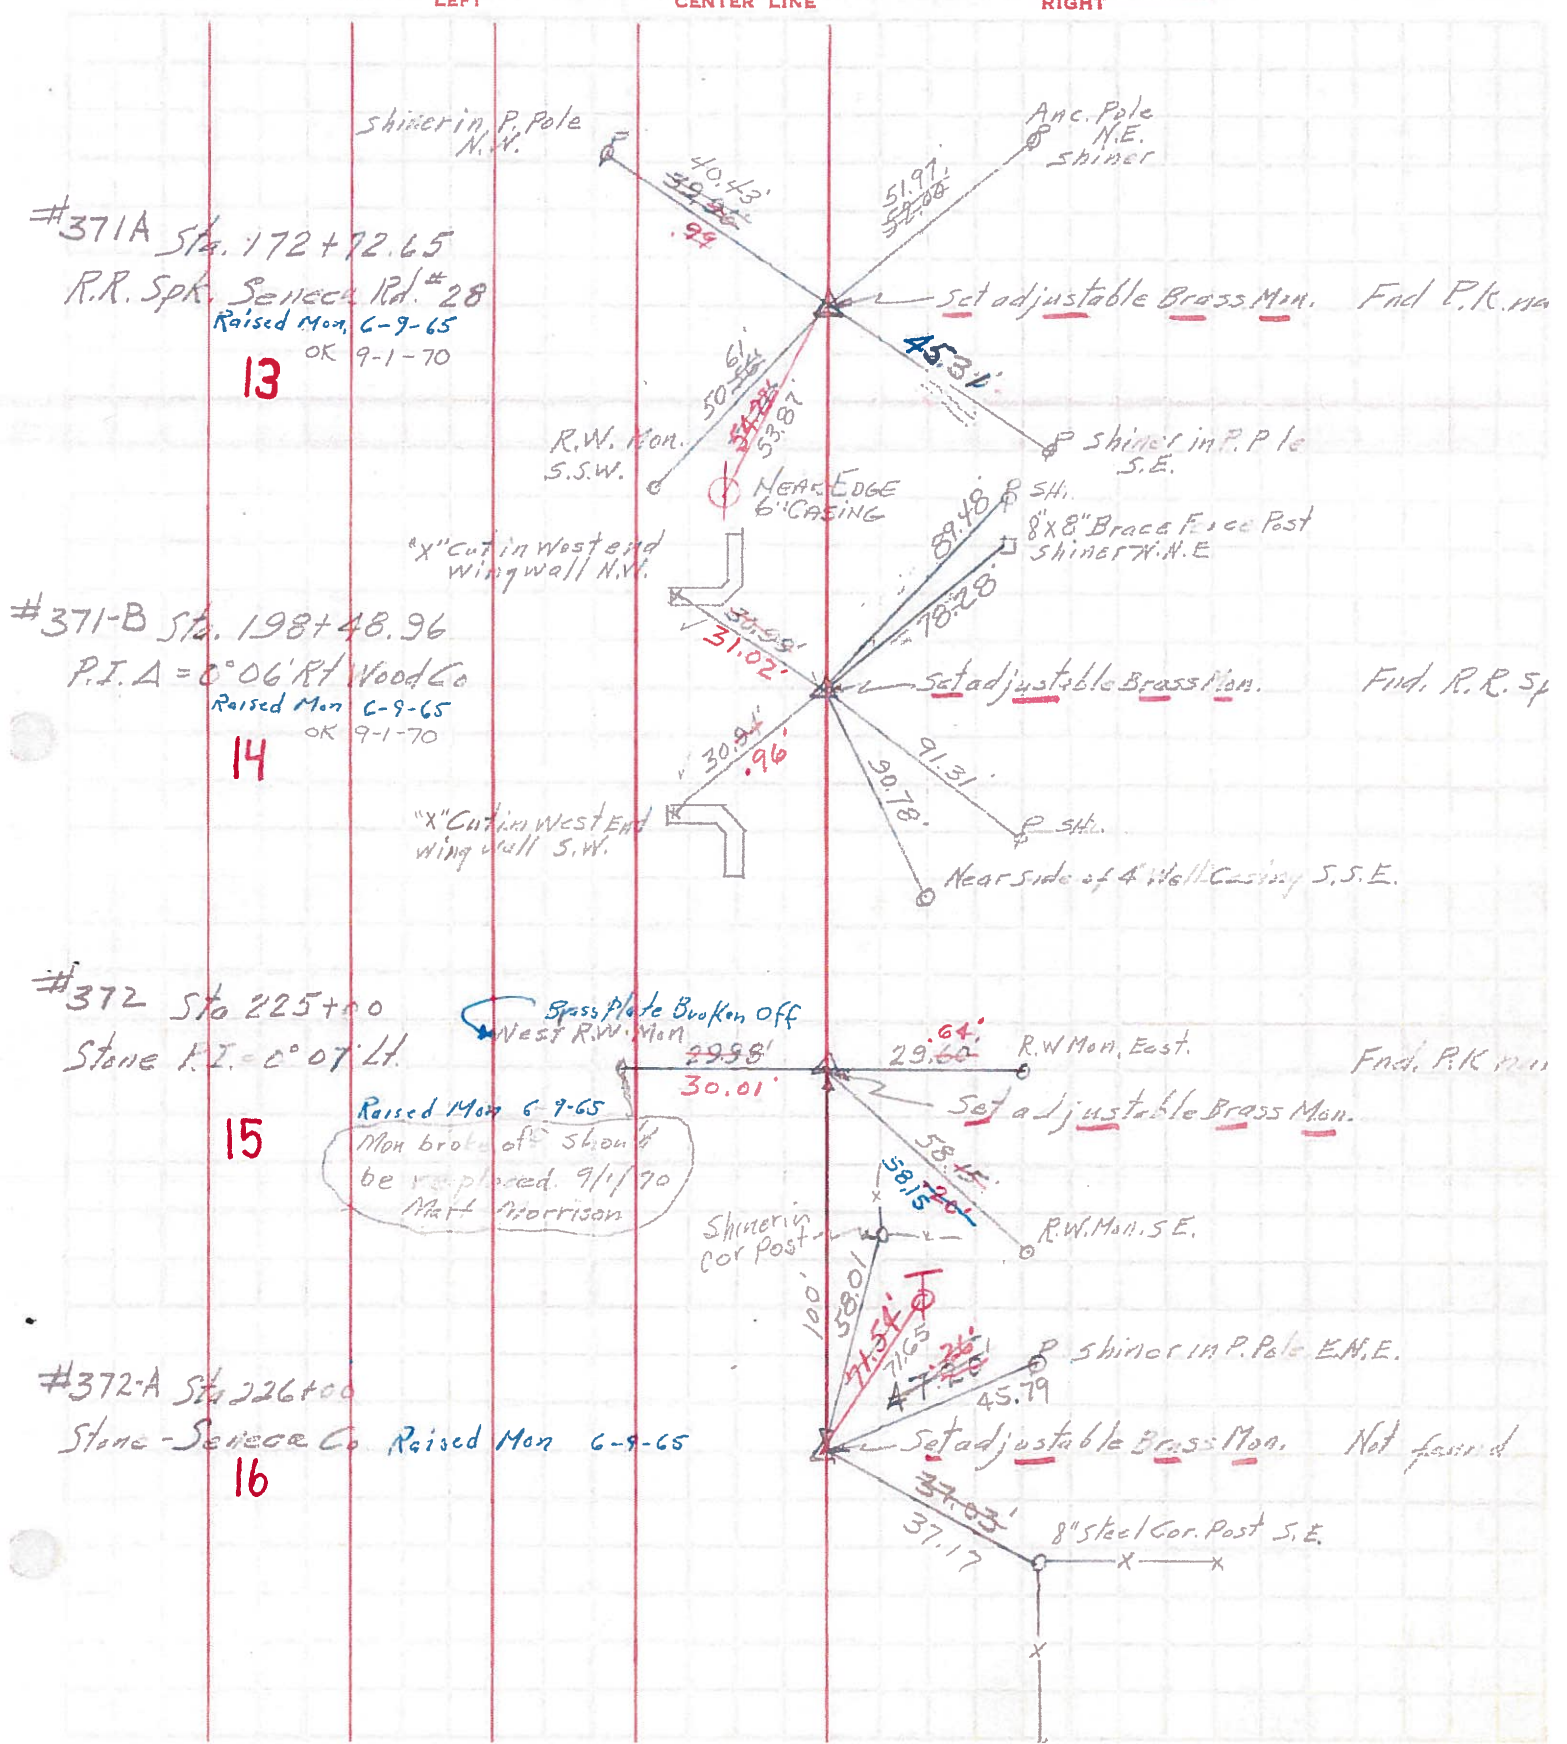 LEFT CENTER LINE RIGHT
shiner in P. Pole
N.W.
Anc. Pole
N.E.
shiner
40.43'
.99
51.97
52.00
#371A Sta. 172+72.65
R.R. Spk. Seneca Rd. #28
Raised Mon. 6-9-65
OK 9-1-70
13
Set adjustable Brass Mon. Fnd P.K. na
45.31'
61'
50.56
54.28'
53.87'
R.W. Mon.
S.S.W.
shiner in P. P le
S.E.
NEAR EDGE
6" CASING
SH.
8"x8" Brace Fence Post
shiner N.N.E
89.48'
78.28'
"X" Cut in West end
wingwall N.W.
30.99'
31.02'
#371-B Sta. 198+48.96
P.I. Δ = 0°06' Rt Wood Co
Raised Mon 6-9-65
OK 9-1-70
14
Set adjustable Brass Mon. Fnd. R.R. Sp
30.94'
.96'
91.31'
90.78'
"X" Cut in West End
wing wall S.W.
SH.
Near side of 4" Well Casing S.S.E.
#372 Sta 225+00
Stone P.I. = 0°07' Lt.
Brass Plate Broken Off
West R.W. Mon
29.98'
30.01'
.64'
29.60
R.W Mon. East.
Fnd. P.K nai
Set adjustable Brass Mon.
Raised Mon 6-9-65
15
Mon broke off should
be replaced. 9/1/70
Matt Morrison
58.15'
.20'
58.15
R.W. Mon. S.E.
Shiner in
cor Post
100'
58.01
71.54'
71.65
.26'
47.20'
P. shiner in P. Pole E.N.E.
45.79
#372-A Sta 226+00
Stone - Seneca Co Raised Mon 6-9-65
16
Set adjustable Brass Mon. Not found
37.03'
37.17
8" Steel Cor. Post S.E.